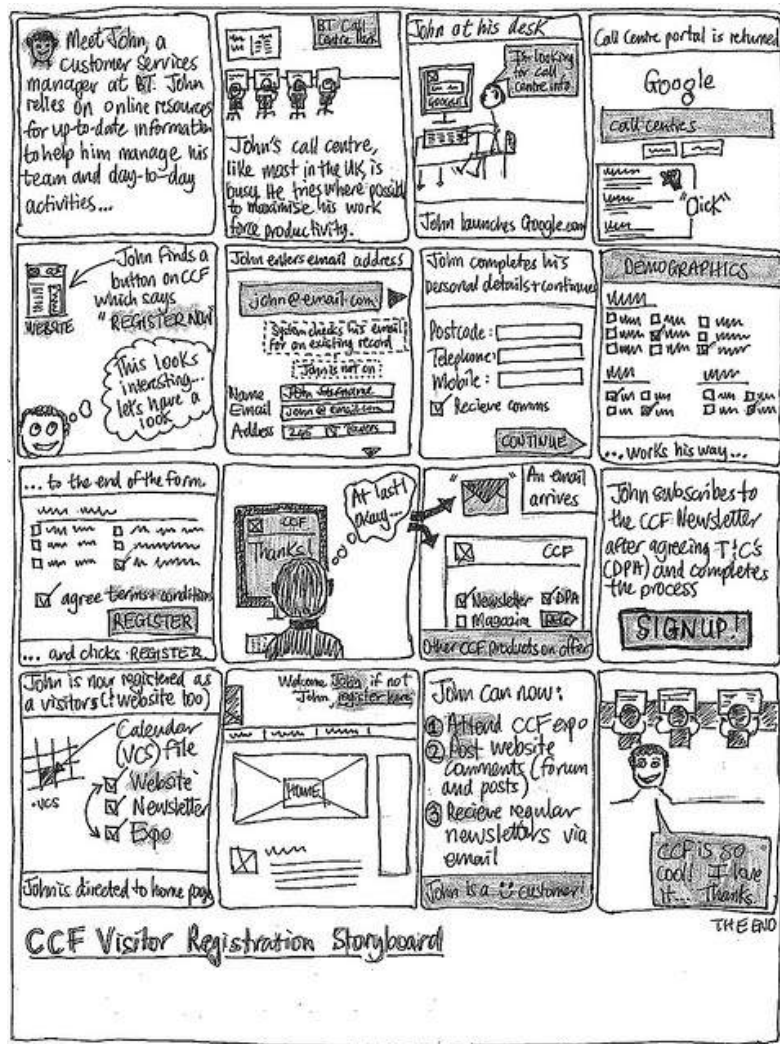 Meet John, a
customer services
manager at BT. John
relies on online resources
for up-to-date information
to help him manage his
team and day-to-day
activities...
BT Call
Centre
John's call centre,
like most in the UK, is
busy. He tries where possible
to maximise his work
force productivity.
John at his desk
I'm looking
for call
centre info
GOOGLE
John launches Google.com
Call Centre portal is returned
Google
call centres
"Click"
John finds a
button on CCF
which says
"REGISTER NOW"
WEBSITE
This looks
interesting...
let's have a
look
John enters email address
john@email.com
System checks his email
for an existing record
John is not on
Name John Surname
Email john@email.com
Address
John completes his
personal details + continues
Postcode:
Telephone:
Mobile:
Recieve comms
CONTINUE
DEMOGRAPHICS
... works his way...
... to the end of the form.
agree terms + conditions
REGISTER
... and clicks REGISTER
CCF
Thanks!
At last!
okay...
An email
arrives
CCF
Newsletter DPA
Magazine
Other CCF products on offer
John subscribes to
the CCF Newsletter
after agreeing T&C's
(DPA) and completes
the process
SIGNUP!
John is now registered as
a visitors (+ website too)
Calendar
(VCS) file
.vcs
Website
Newsletter
Expo
John is directed to home page
Welcome John if not
John, register here
HOME
John can now:
1 Attend CCF expo
2 Post website
comments (forum
and posts)
3 Recieve regular
newsletters via
email
John is a customer!
CCF is so
cool! I love
it... Thanks.
THE END
CCF Visitor Registration Storyboard